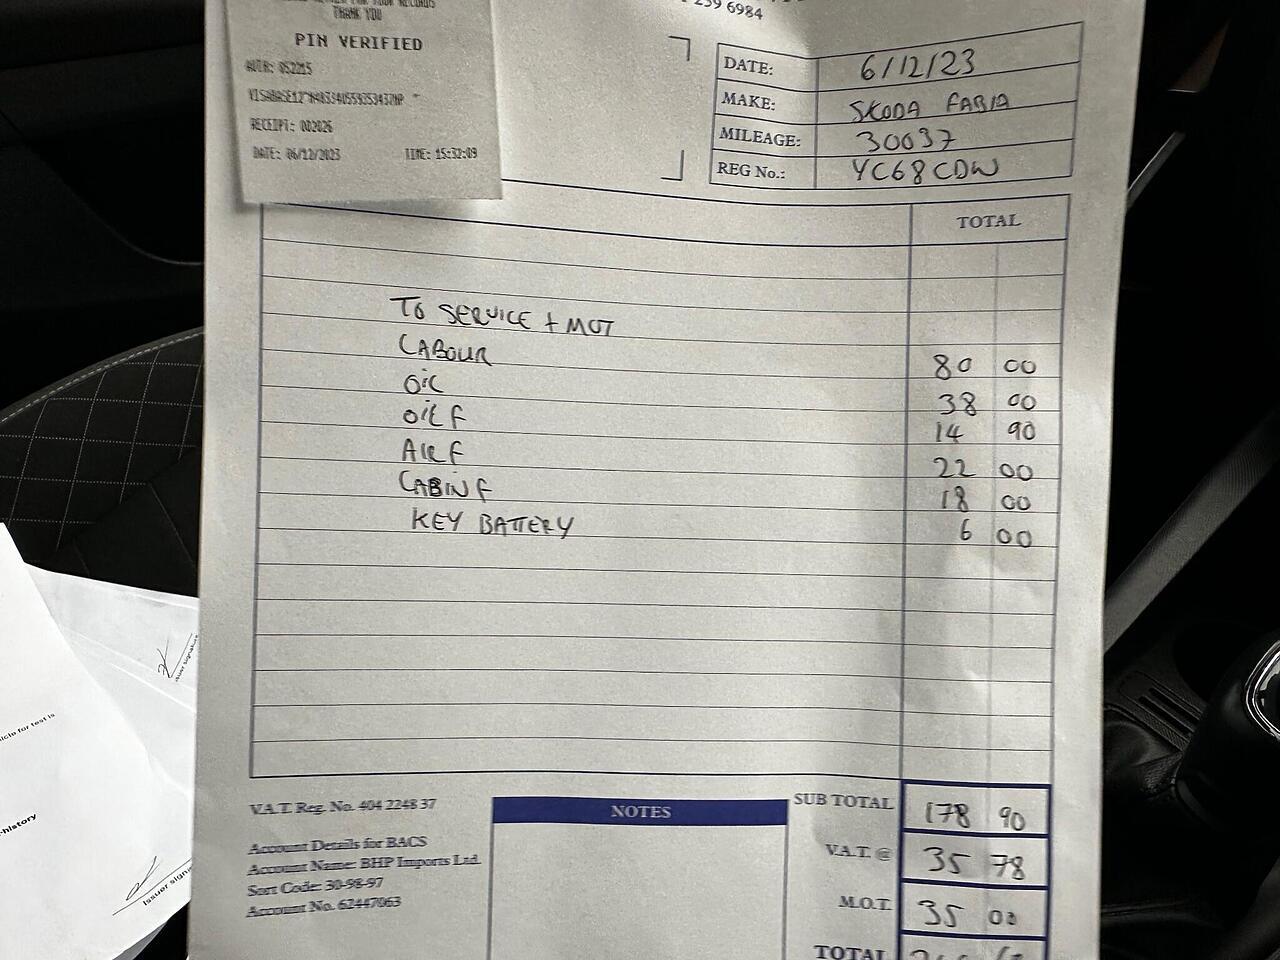 THANK YOU
PIN VERIFIED
AUTH: 052215
RECEIPT: 002026
DATE: 06/12/2023 TIME: 15:32:09
239 6984
DATE: 6/12/23
MAKE: SKODA FABIA
MILEAGE: 30037
REG No.: YC68CDW
TOTAL
TO SERVICE + MOT
LABOUR 80 00
OIL 38 00
OIL F 14 90
AIR F 22 00
CABIN F 18 00
KEY BATTERY 6 00
V.A.T. Reg. No. 404 2248 37
Account Details for BACS
Account Name: BHP Imports Ltd.
Sort Code: 30-98-97
Account No. 62447063
NOTES
SUB TOTAL 178 90
V.A.T. @ 35 78
M.O.T. 35 00
TOTAL
icle for test is
-history
Issuer signa